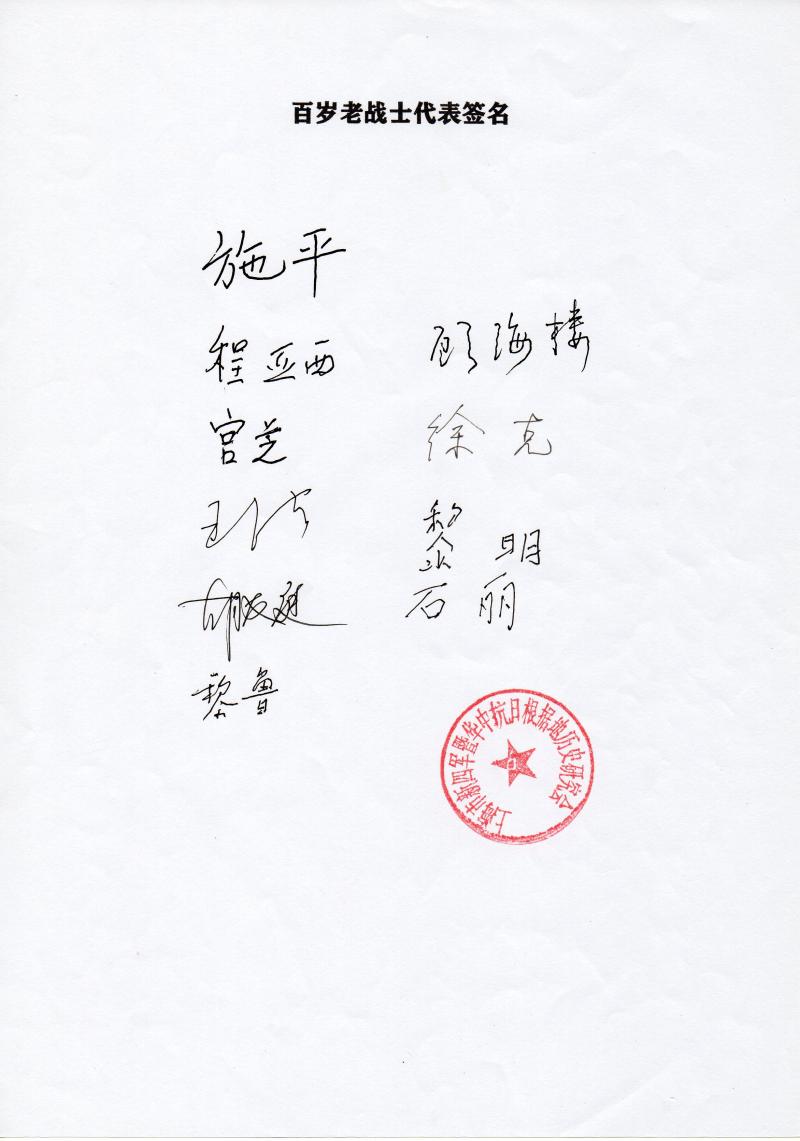 百岁老战士代表签名
施平
程亚西 顾海楼
宫芝 徐克
王
黎明
胡友庭 石丽
黎鲁
上海市新四军暨华中抗日根据地历史研究会